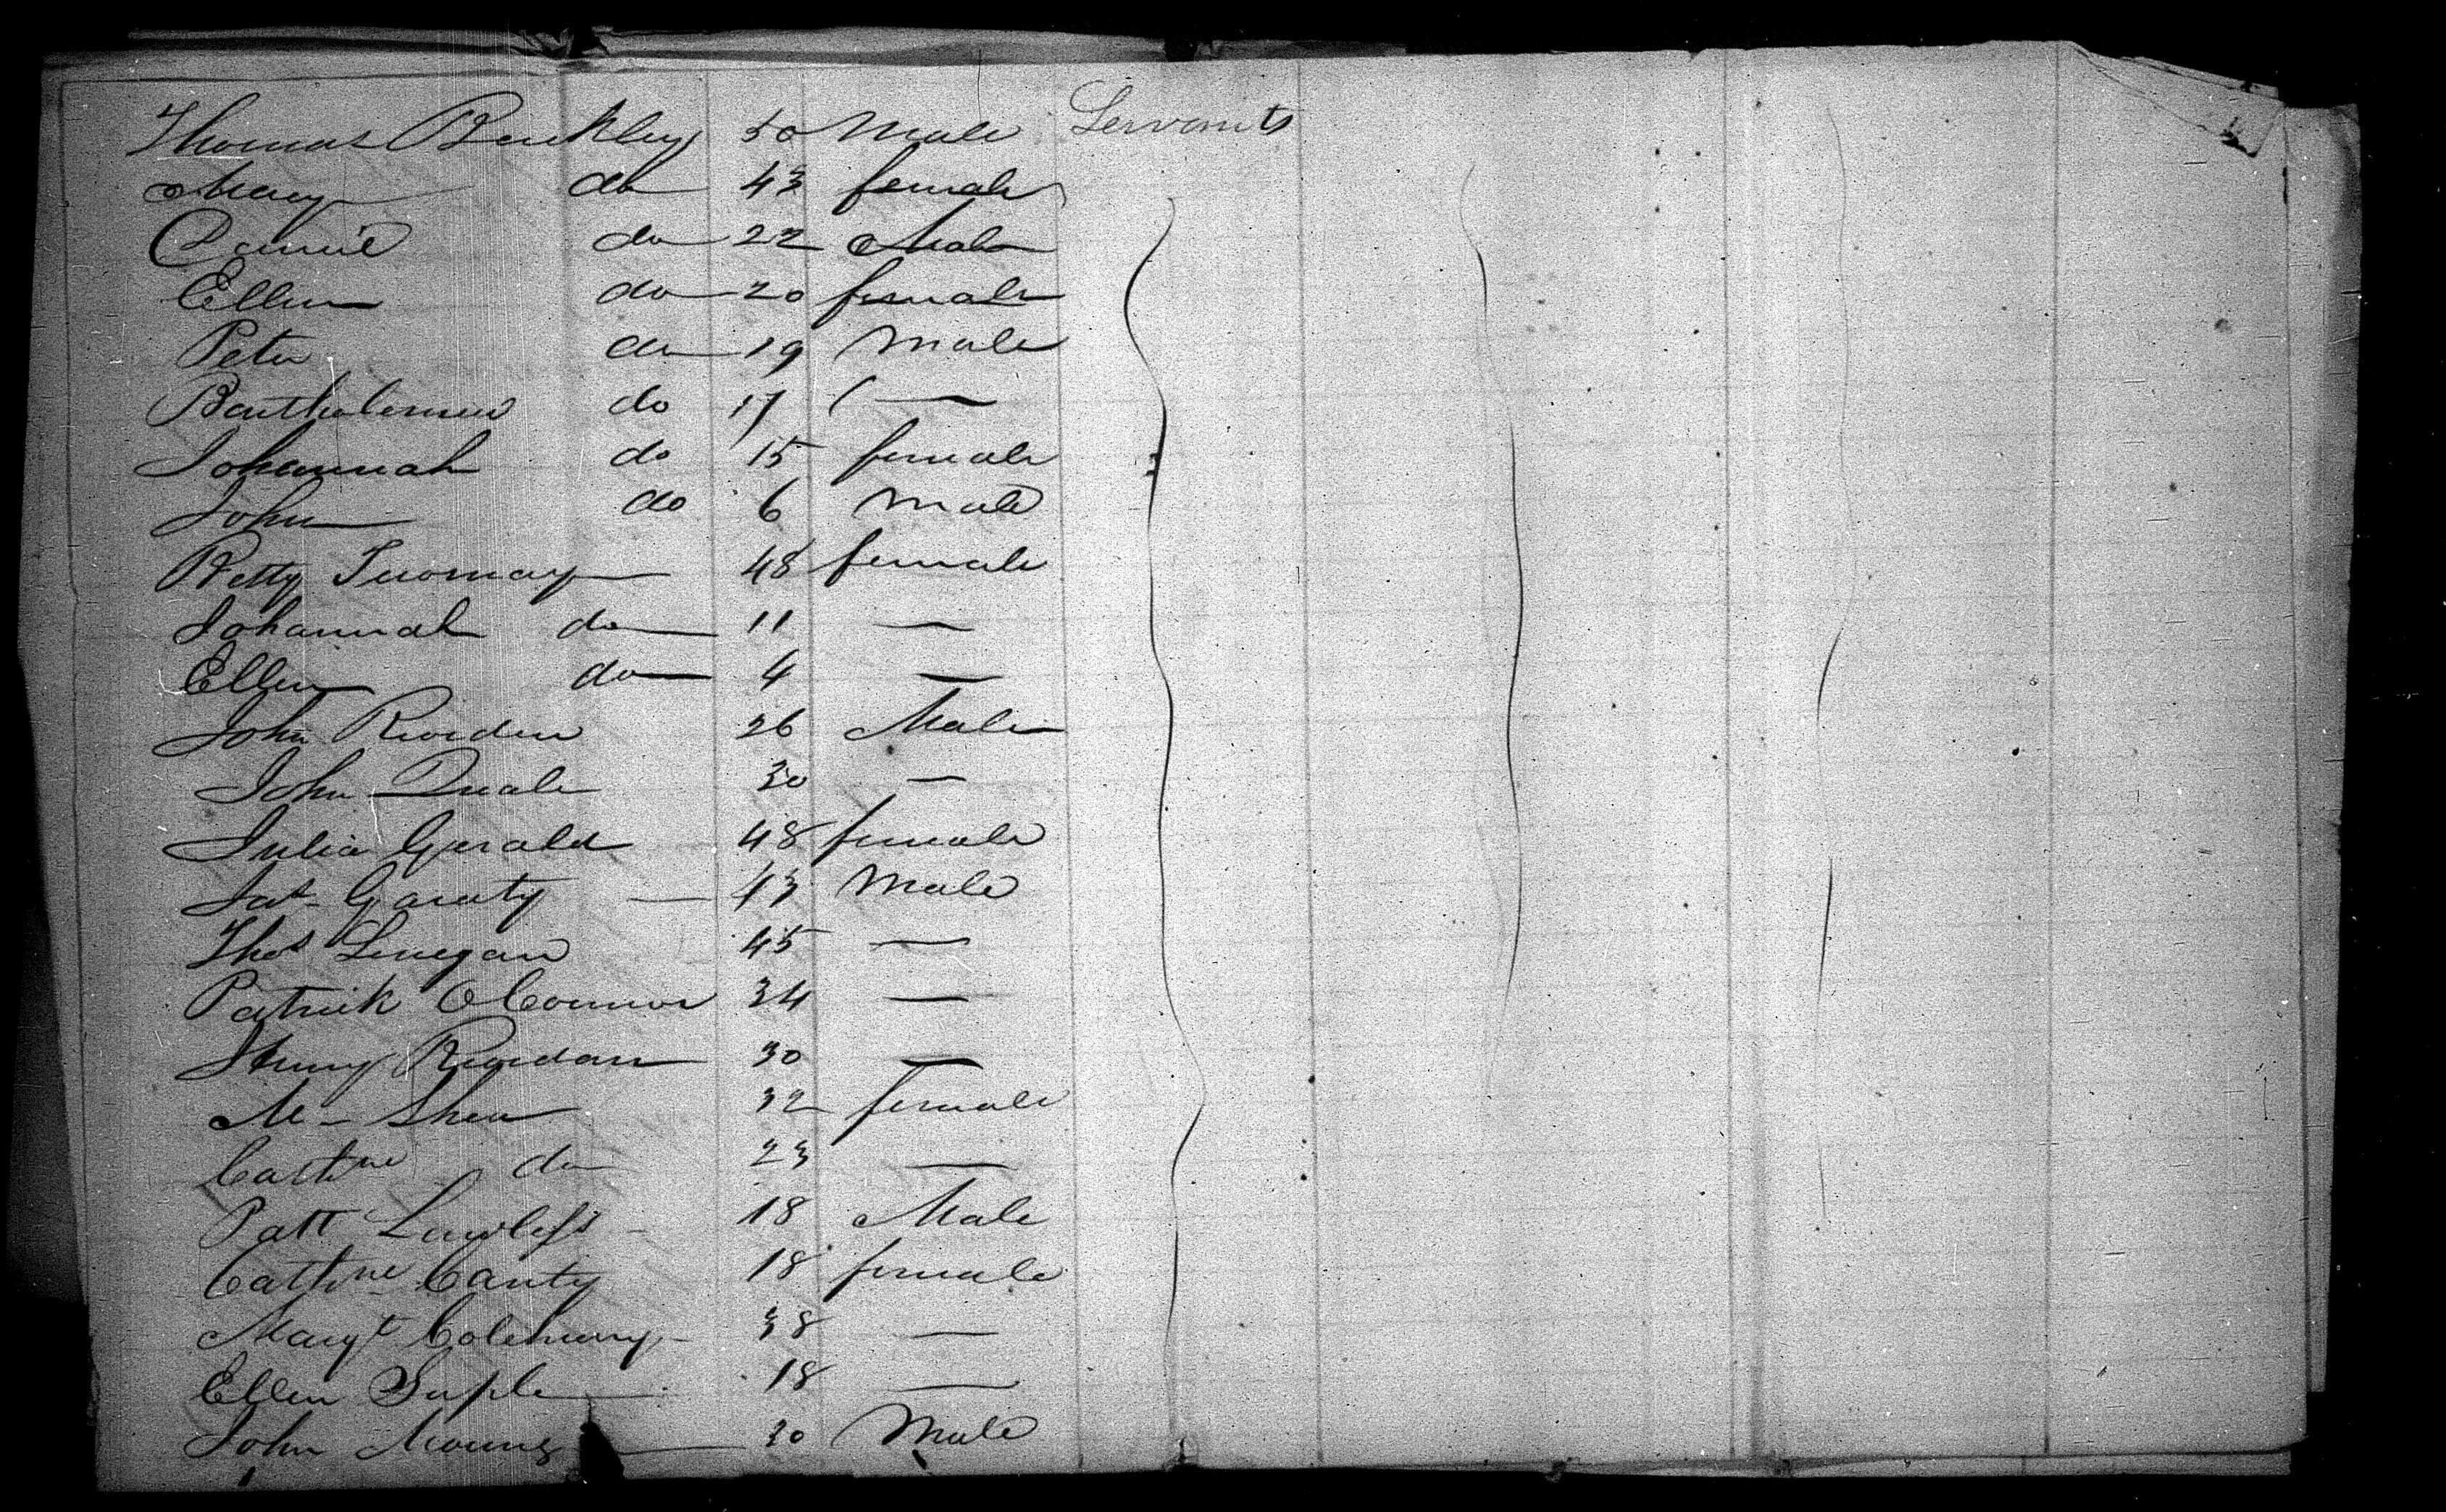 Thomas Buckley 50 Male Servants
Mary do 43 female
Daniel do 22 Male
Ellen do 20 female
Peter do 19 Male
Bartholemew do 17 —
Johannah do 15 female
John do 6 Male
Betty Twomay 48 female
Johannah do 11 —
Ellen do 4 —
John Riorden 26 Male
John Quale 30 —
Julia Gerald 48 female
Jas Garaty 43 Male
Thos Linegan 45 —
Patrick OConnor 34 —
Riordan 30 —
M - Shea 32 female
Cathne do 23 —
Patt Lawless 18 Male
Cathne Canty 18 female
Margt 38 —
Ellen Suple 18 —
John 30 Male